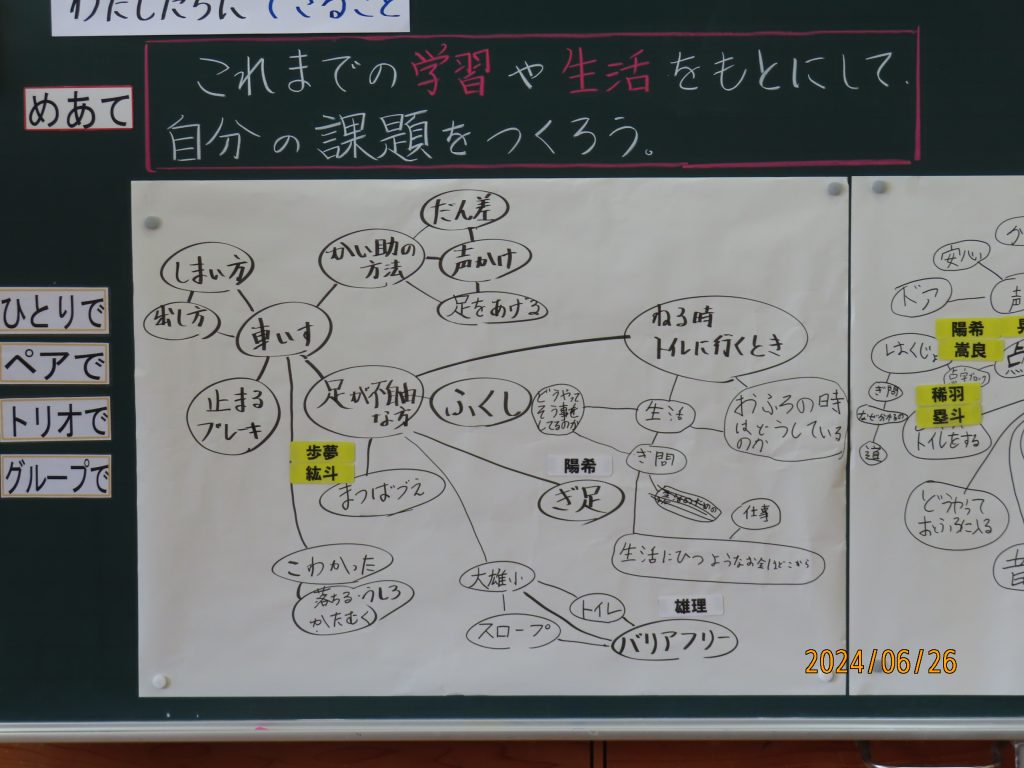 わたしたちにできること
めあて
これまでの学習や生活をもとにして、
自分の課題をつくろう。
ひとりで
ペアで
トリオで
グループで
だん差
かい助の
方法
声かけ
足をあげる
しまい方
出し方
車いす
止まる
ブレーキ
足が不自由
な方
ふくし
歩夢
紘斗
まつばづえ
こわかった
落ちる・うしろ
かたむく
ねる時
トイレに行くとき
どうやって
そう事を
してるのか
生活
おふろの時
はどうしている
のか
ぎ問
陽希
ぎ足
仕事
生活にひつようなお金はどこから
大雄小
トイレ
スロープ
雄理
バリアフリー
安心
ドア
声
陽希
嵩良
点
点字ブロック
ぎ問
なぜ分かれるの
道
稀羽
塁斗
トイレをする
どうやって
おふろに入る
音
2024/06/26